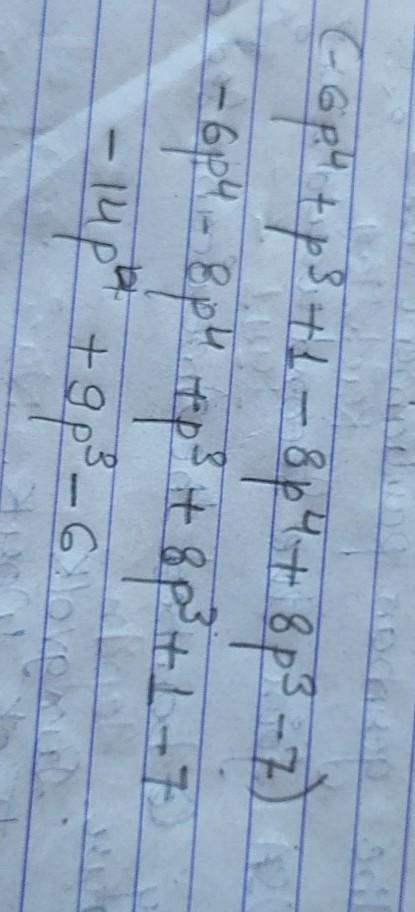 (-6p⁴ + p³ + 1 - 8p⁴ + 8p³ - 7)
-6p⁴ - 8p⁴ + p³ + 8p³ + 1 - 7
-14p⁴ + 9p³ - 6